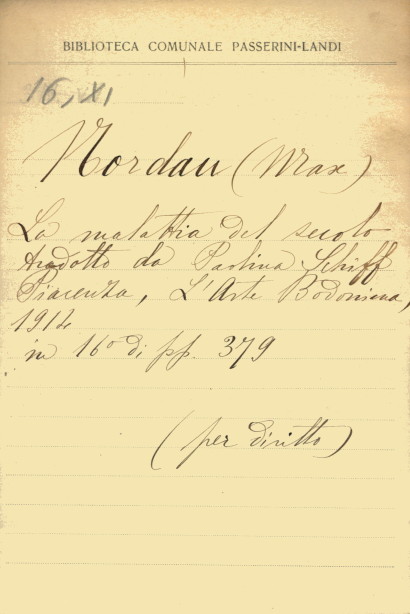 BIBLIOTECA COMUNALE PASSERINI-LANDI
16, XI
Nordau (Max)
La malattia del secolo
tradotto da Paolina Schiff
Piacenza, L'Arte Bodoniana,
1914
in 16º di pp. 379
(per diritto)